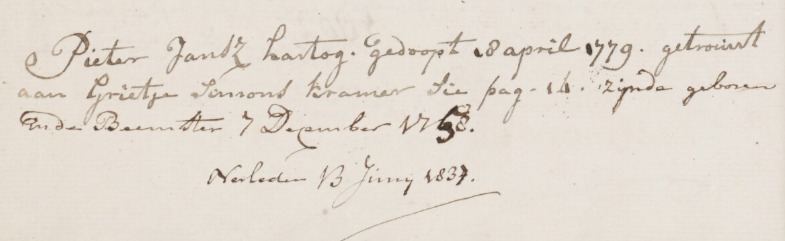 Pieter Jansz hartog. Gedoopt 18 april 1779. getrouwt
aan Grietje Simons Kramer Sie pag. 14. zijnde geboren
in de Beemster 7 December 1758.
Overleden 13 Juny 1837.